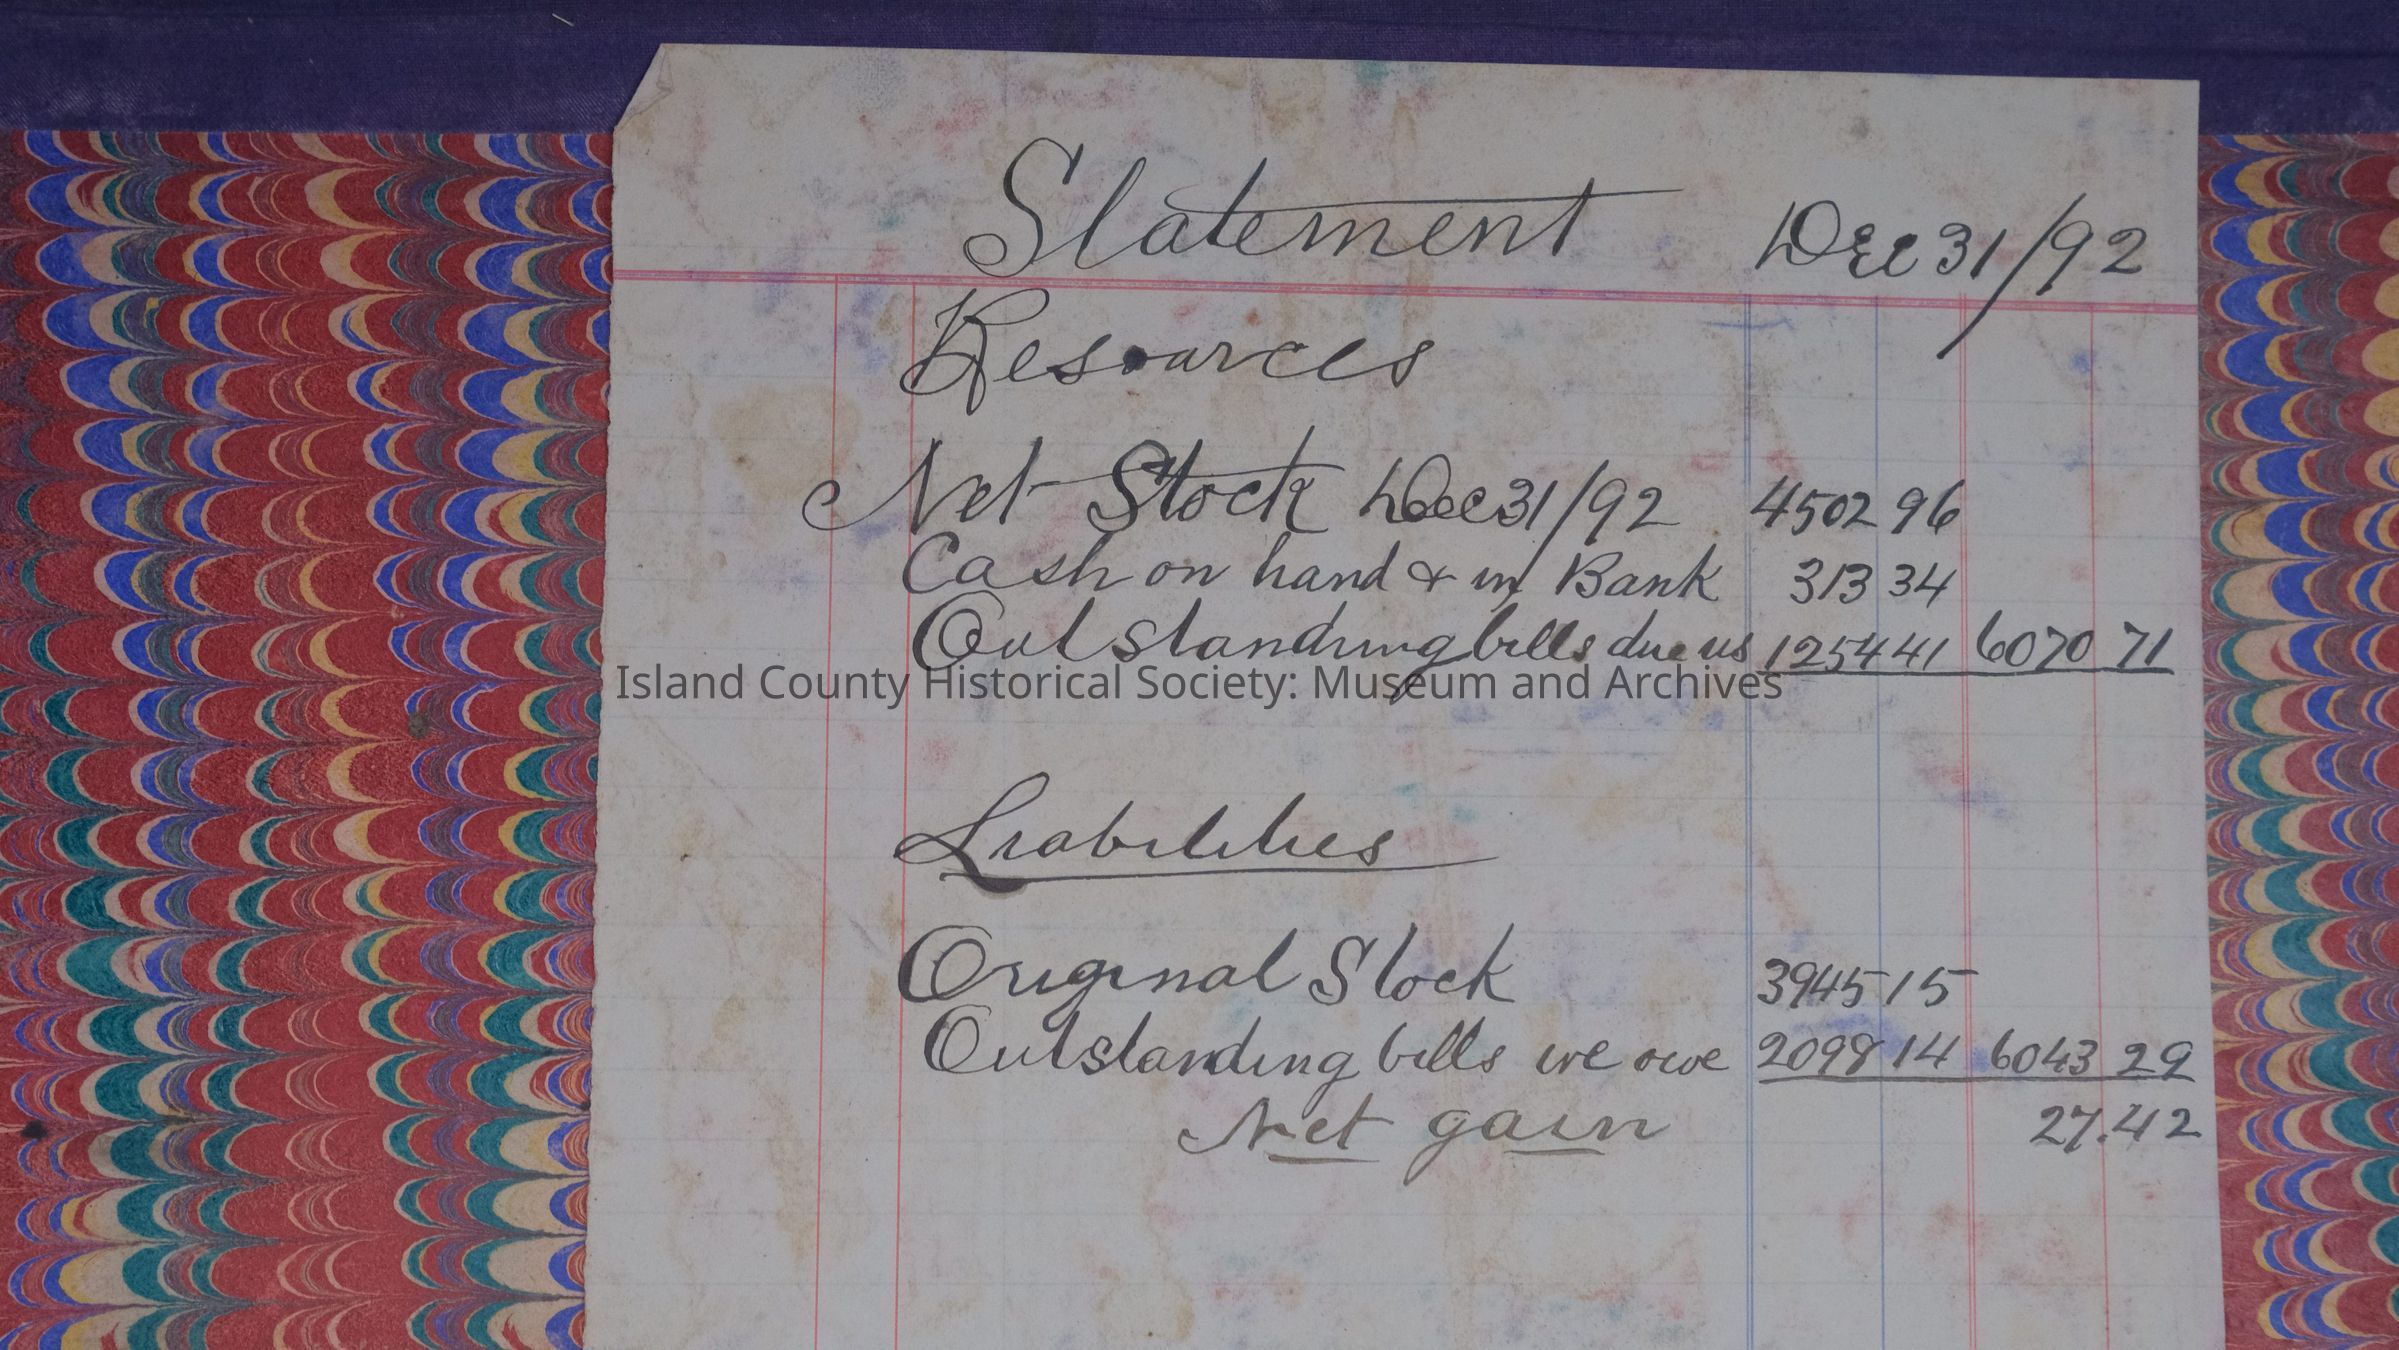 Statement Dec 31/92
Resources
Net Stock Dec 31/92 4502 96
Cash on hand & in Bank 313 34
Outstanding bills due us 1254 41 6070 71
Island County Historical Society: Museum and Archives
Liabilities
Original Stock 3945 15
Outstanding bills we owe 2098 14 6043 29
Net gain 27.42